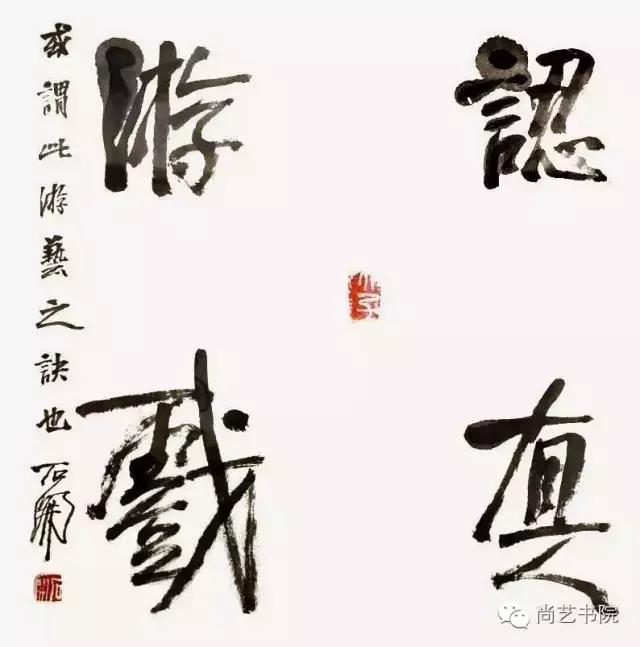 認真
游戲
或謂此游藝之訣也 石開
尚艺书院